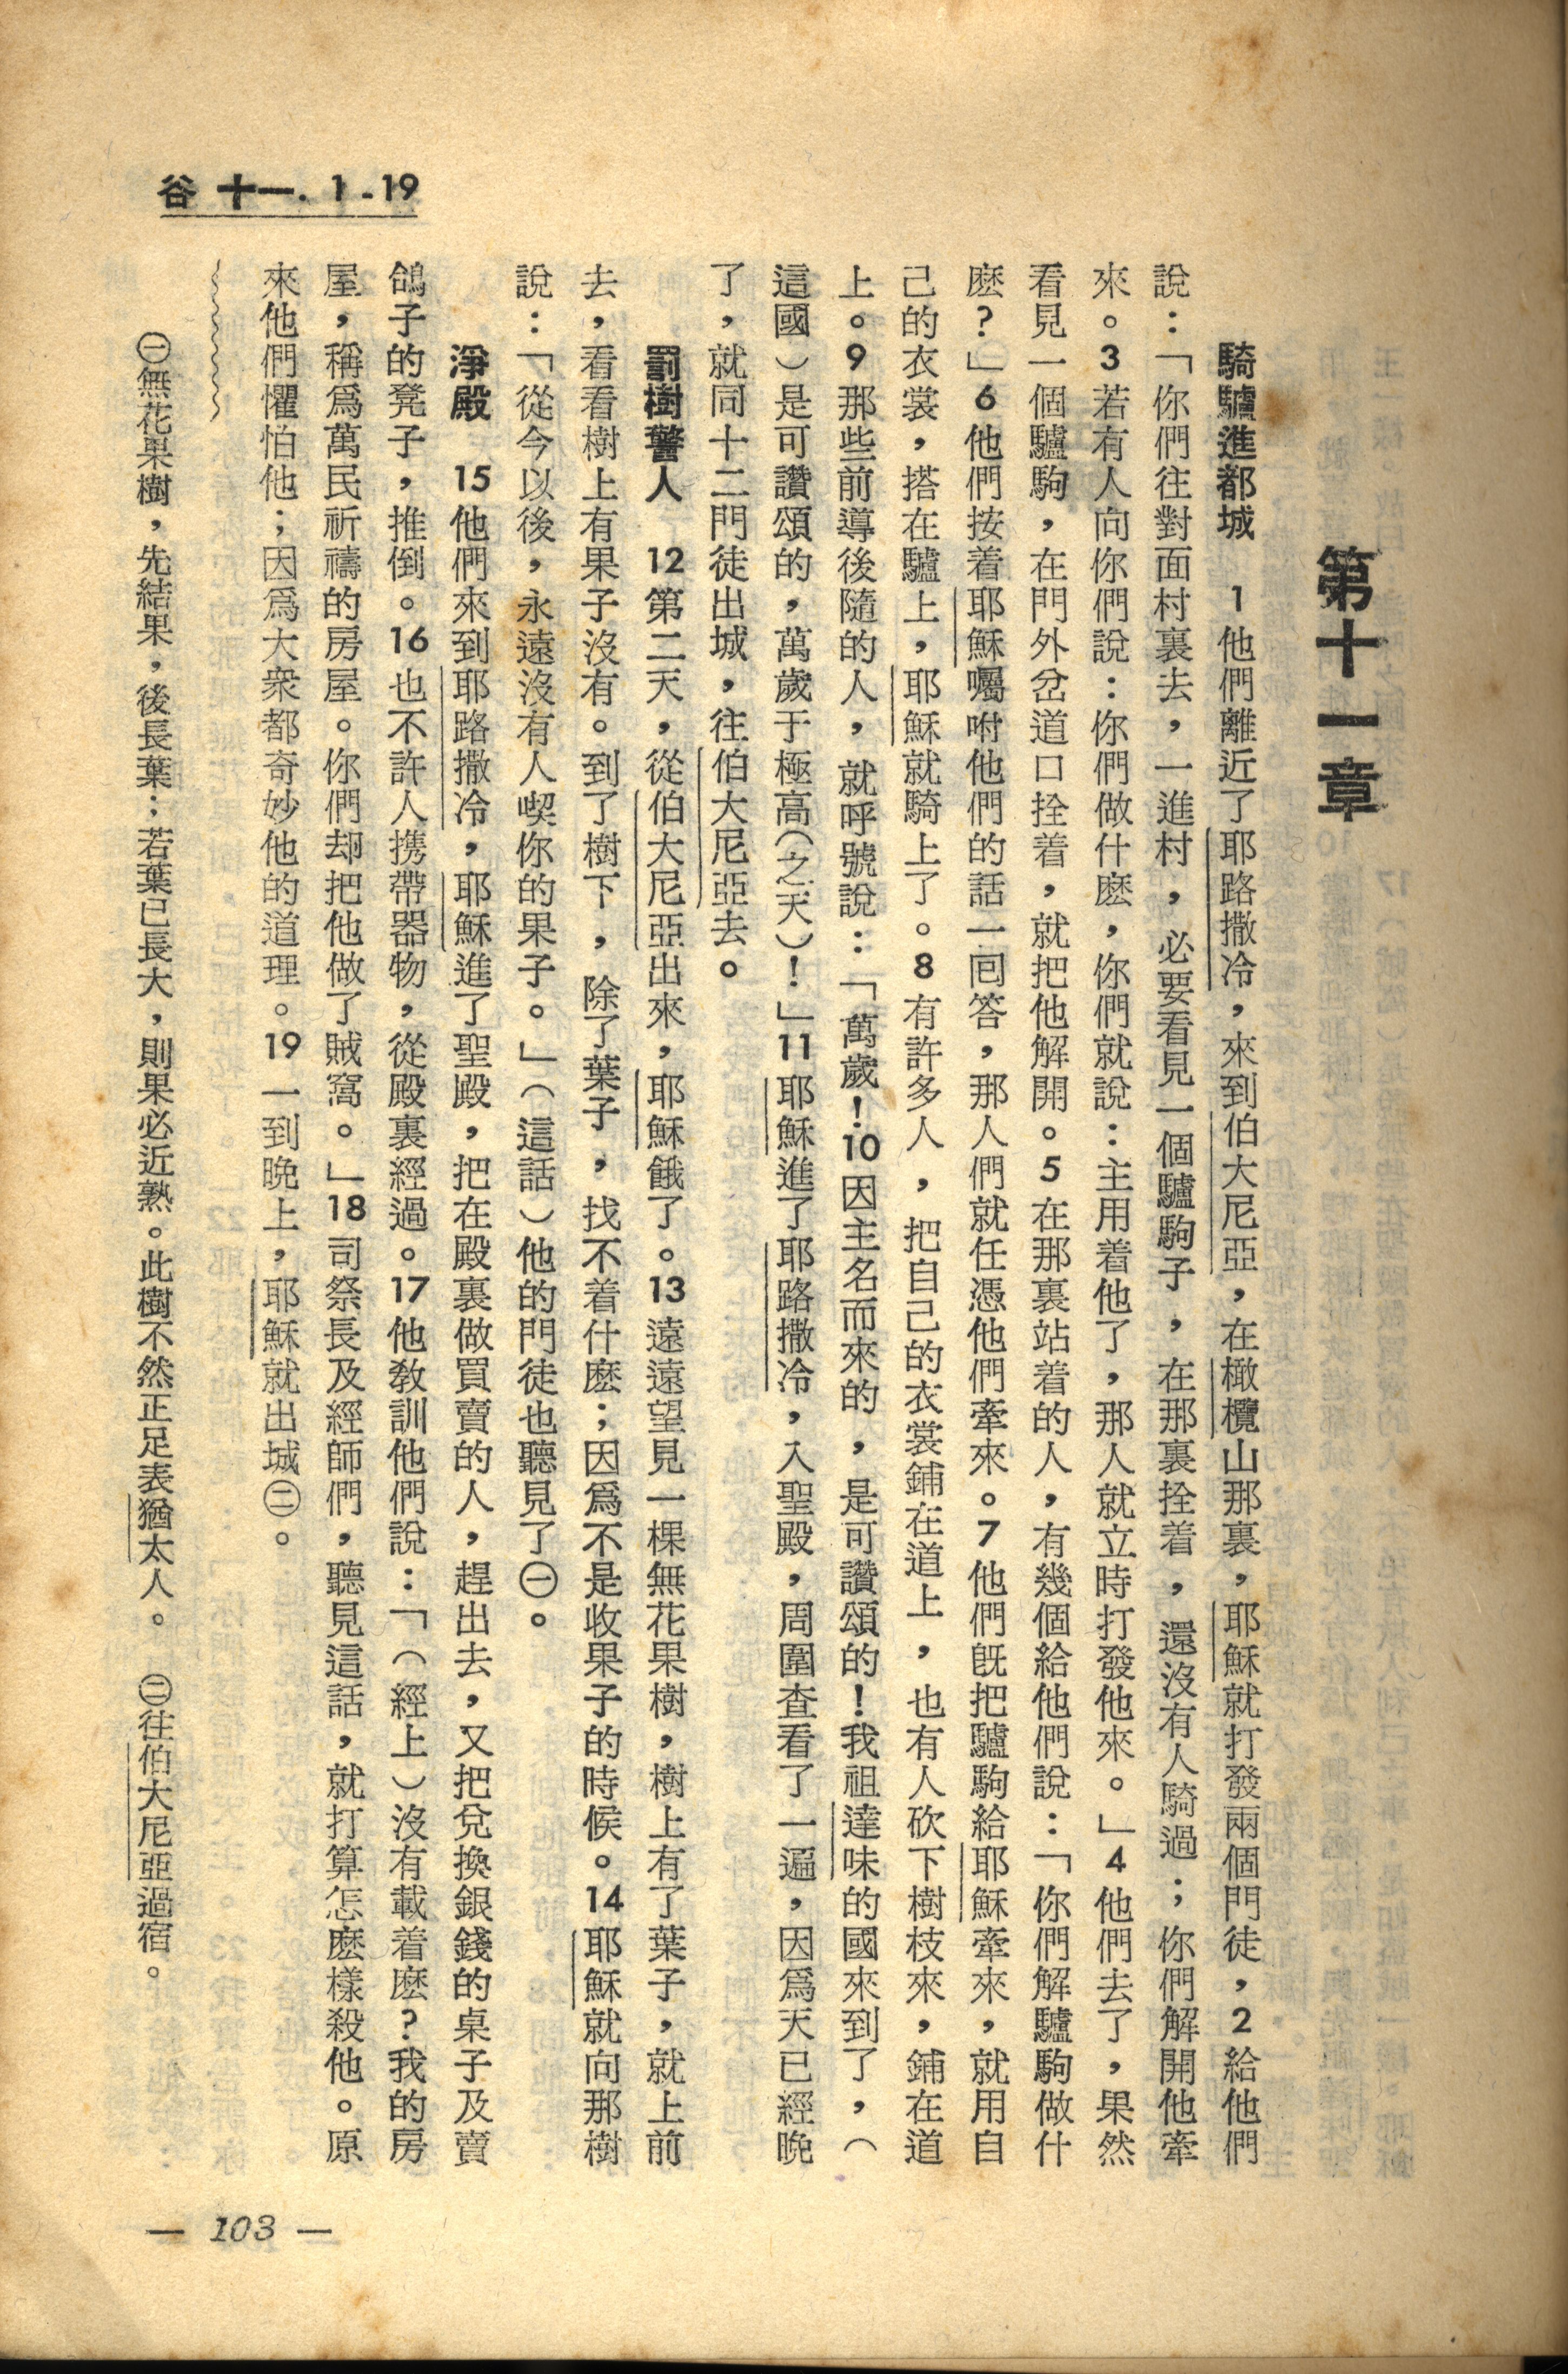 谷 十一. 1-19
第十一章
騎驢進都城　1他們離近了耶路撒冷，來到伯大尼亞，在橄欖山那裏，耶穌就打發兩個門徒，2給他們
說：「你們往對面村裏去，一進村，必要看見一個驢駒子，在那裏拴着，還沒有人騎過；你們解開他牽
來。3若有人向你們說：你們做什麽，你們就說：主用着他了，那人就立時打發他來。」4他們去了，果然
看見一個驢駒，在門外岔道口拴着，就把他解開。5在那裏站着的人，有幾個給他們說：「你們解驢駒做什
麽?」6他們按着耶穌囑咐他們的話一囘答，那人們就任憑他們牽來。7他們旣把驢駒給耶穌牽來，就用自
己的衣裳，搭在驢上，耶穌就騎上了。8有許多人，把自己的衣裳鋪在道上，也有人砍下樹枝來，鋪在道
上。9那些前導後隨的人，就呼號說：「萬歲！10因主名而來的，是可讚頌的！我祖達味的國來到了，（
這國）是可讚頌的，萬歲于極高（之天）！」11耶穌進了耶路撒冷，入聖殿，周圍查看了一遍，因爲天已經晚
了，就同十二門徒出城，往伯大尼亞去。
罰樹警人　12第二天，從伯大尼亞出來，耶穌餓了。13遠遠望見一棵無花果樹，樹上有了葉子，就上前
去，看看樹上有果子沒有。到了樹下，除了葉子，找不着什麽；因爲不是收果子的時候。14耶穌就向那樹
說：「從今以後，永遠沒有人喫你的果子。」（這話）他的門徒也聽見了㊀。
淨殿　15他們來到耶路撒冷，耶穌進了聖殿，把在殿裏做買賣的人，趕出去，又把兌換銀錢的桌子及賣
鴿子的凳子，推倒。16也不許人携帶器物，從殿裏經過。17他敎訓他們說：「（經上）沒有載着麽?我的房
屋，稱爲萬民祈禱的房屋。你們却把他做了賊窩。」18司祭長及經師們，聽見這話，就打算怎麽樣殺他。原
來他們懼怕他；因爲大衆都奇妙他的道理。19一到晚上，耶穌就出城㊁。
㊀無花果樹，先結果，後長葉；若葉已長大，則果必近熟。此樹不然正足表猶太人。　㊁往伯大尼亞過宿。
— 103 —